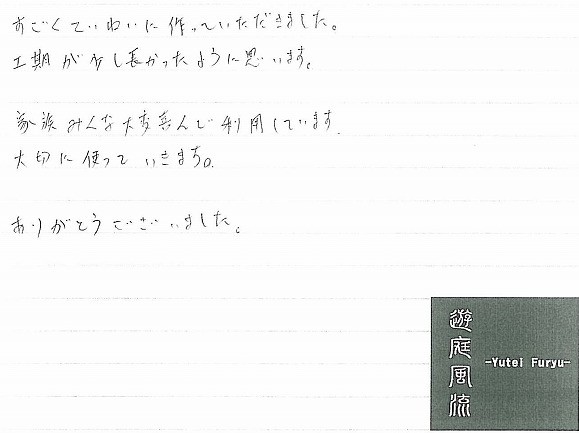 すごくていねいに作っていただきました。
工期が少し長かったように思います。
家族みんな大変喜んで利用しています.
大切に使っていきます。
ありがとうございました。
遊庭風流
-Yutei Furyu-